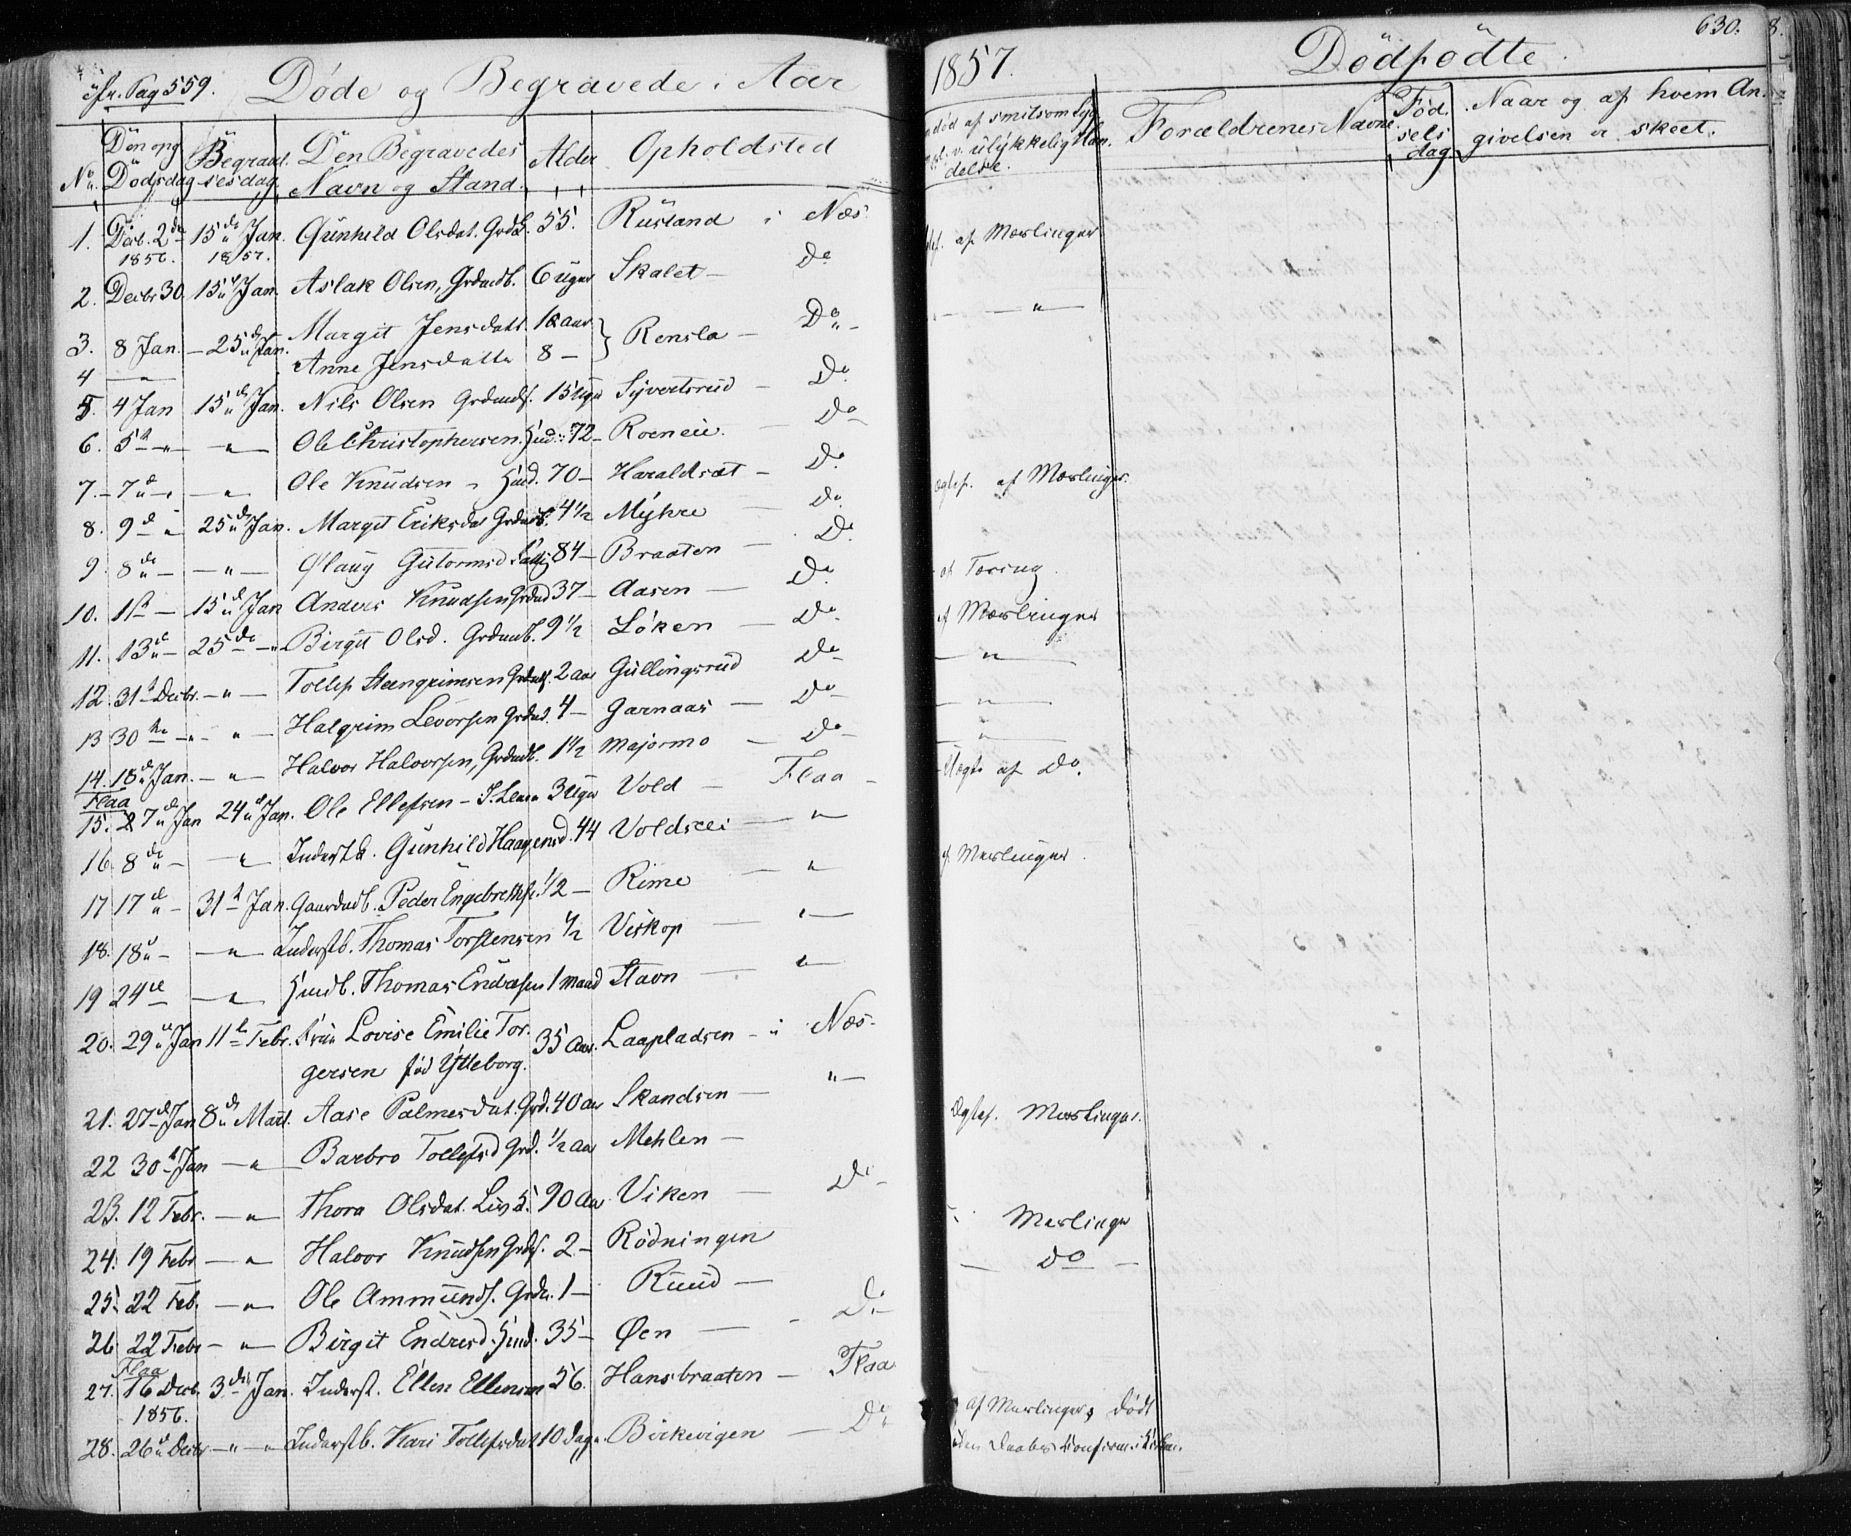 Pag 559. Døde og Begravede i Aar 1857. Dødfødte. 630.
No. Døn og Dødsdag Begravelsesdag Den Begravedes Navn og Stand. Alder Opholdsted død af smitsom v. ulykkelig Hændelse. Forældrenes Navne Fødselsdag Naar og af hvem Angivelsen er skeet.
1. Decb. 2de 1856. 15de Jan. 1857. Gunhild Olsdat. 55. Rusland i Næs. af Mæslinger
2. Decbr 30 15de Jan. Aslak Olsen, Grdmdb. 6 uger Skalet — Do — " —
3. 8 Jan. — 25de Jan. Margit Jensdatt. 12 aar } Rensla — Do —
4 — " — Anne Jensdatter 8 —
5. 4 Jan 15de Jan. Nils Olsen Grdmds. 15 uger Syvertsrud — Do
6. 5te — " — " — Ole Christophersen. Husd. 72 — Roeneie. Do
7. — 7de — " — " — Ole Knudsen — Husd. 70 — Haraldset — Do. af Mæslinger.
8. 9de — " 25de Jan. Margit Eriksdat Grdmdb. 4 1/2 Myhre — Do
9. 8de — — " — Olaug Gutormsd 84 — Braaten — Do.
10. 1ste — 15de Jan Anders Knudsen Grdmd 37 — Aasen — Do. af Tæring.
11. 13de — 25de — " Birgit Olsd. Grdmdb. 9 1/2 Løken — Do. af Mæslinger
12. 31te Decbr. — " — Tollef Steengrimsen 2 aar Gullingsrud Do — " —
13 30te — " — " — Halgrim Levorsen Grdmd. 4 — Garnaas — Do — " —
14. 15de Jan. — " Halvor Halvorsen, Grdmdb. 1 1/2 Majormo — Do — " —
Flaa
15. 7de Jan 24de Jan. Ole Ellefsen — 3 Uger Vold — Flaa — af Do.
16. 8de — — " Inderst. Gunhild Haagensd. 44 Voldseie — "
17 17de — 31te Jan. Gaardmdb. Peder Engebrethsen 1/2 — Rime — " af Mæslinger.
18. 18de — — " — Inderstb. Thomas Torstensen 1/2 Viskop — " —
19 24de — " Husmdb. Thomas 1 maaned Stavn — " —
20. 29de Jan 11te Febr. Fru Lovise Emilie Tor-
gersen fød Ytteborg. 35 Aar. Laapladsen — i Næs.
21. 27de Jan 8de Marts. Aase Palmesdat. Grd. 40 aar Skandsen — " — Mæslinger.
22 30te Jan — " — Barbro Tollefsd Grd. 1/2 aar Mehlen —
23. 12 Febr. — " — Thora Olsdat. 90 Aar Viken — Do —
24. 19 Febr — " Halvor Knudsen Grds. 2 — Rødningen Mæslinger
25. 22 Feb. — " — Ole Ammunds. Grdm. 1 — Ruud — — Do —
26 22 Febr — " — Birgit Endresd. Husmd. 35 — Øen — Do —
Flaa
27. 16 Decb. 1856. 3die Jan. Inderst. Ellen Ellensen 56. Hansbraaten — Flaa
28. 26de Decbr — " — " Inderstb. Kari Tollefsdat 10 dage. Birkevigen — Do af Mæslinger, Dødt